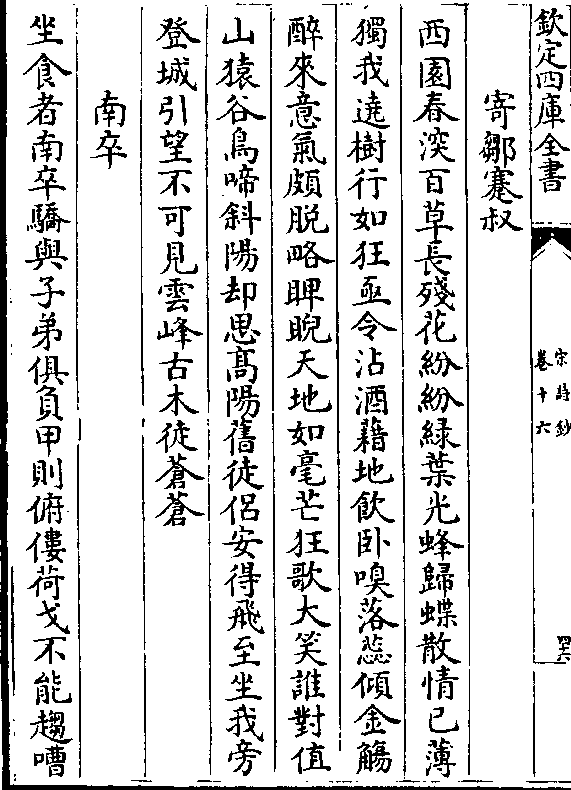 欽定四庫全書
宋詩鈔
卷十六
四六
寄鄒蹇叔
西園春深百草長殘花紛紛緑葉光蜂歸蝶散情已薄
獨我遶樹行如狂亟令沽酒藉地飲卧嗅落蕊傾金觴
醉來意氣頗脱略睥睨天地如毫芒狂歌大笑誰對值
山猿谷鳥啼斜陽却思髙陽舊徒侣安得飛至坐我旁
登城引望不可見雲峰古木徒蒼蒼
南卒
坐食者南卒驕與子弟俱負甲則俯僂荷戈不能趨嘈